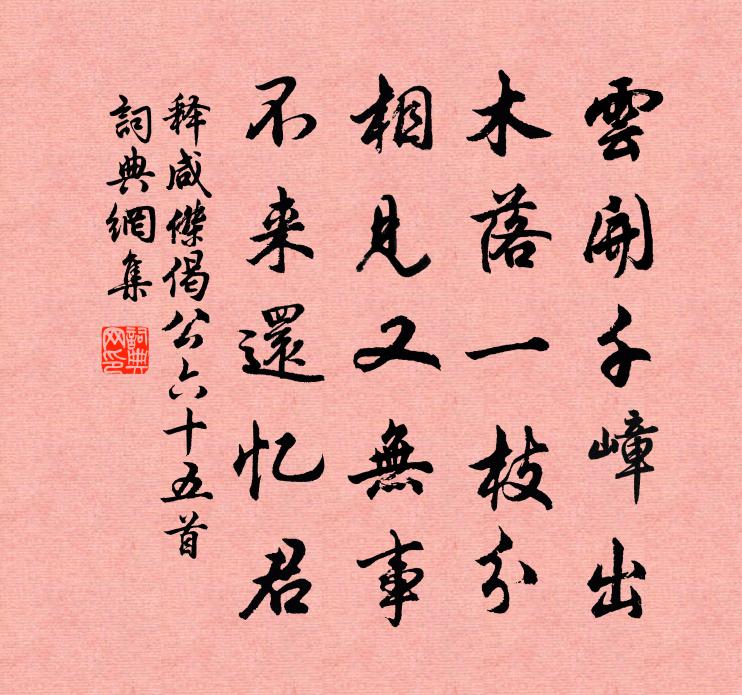 雲開千嶂出
木落一枝分
相見又無事
不来還忆君
释咸傑偈公六十五首
詞典網集
詞典网印